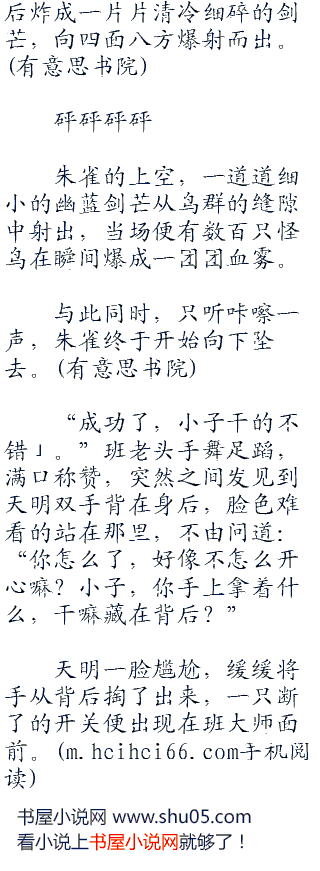 后炸成一片片清冷细碎的剑
芒，向四面八方爆射而出。
(有意思书院)
砰砰砰砰
朱雀的上空，一道道细
小的幽蓝剑芒从鸟群的缝隙
中射出，当场便有数百只怪
鸟在瞬间爆成一团团血雾。
与此同时，只听咔嚓一
声，朱雀终于开始向下坠
去。(有意思书院)
“成功了，小子干的不
错」。”班老头手舞足蹈，
满口称赞，突然之间发见到
天明双手背在身后，脸色难
看的站在那里，不由问道：
“你怎么了，好像不怎么开
心嘛？小子，你手上拿着什
么，干嘛藏在背后？”
天明一脸尴尬，缓缓将
手从背后掏了出来，一只断
了的开关便出现在班大师面
前。(m.hcihci66.com手机阅
读)
书屋小说网 www.shu05.com
看小说上书屋小说网就够了！